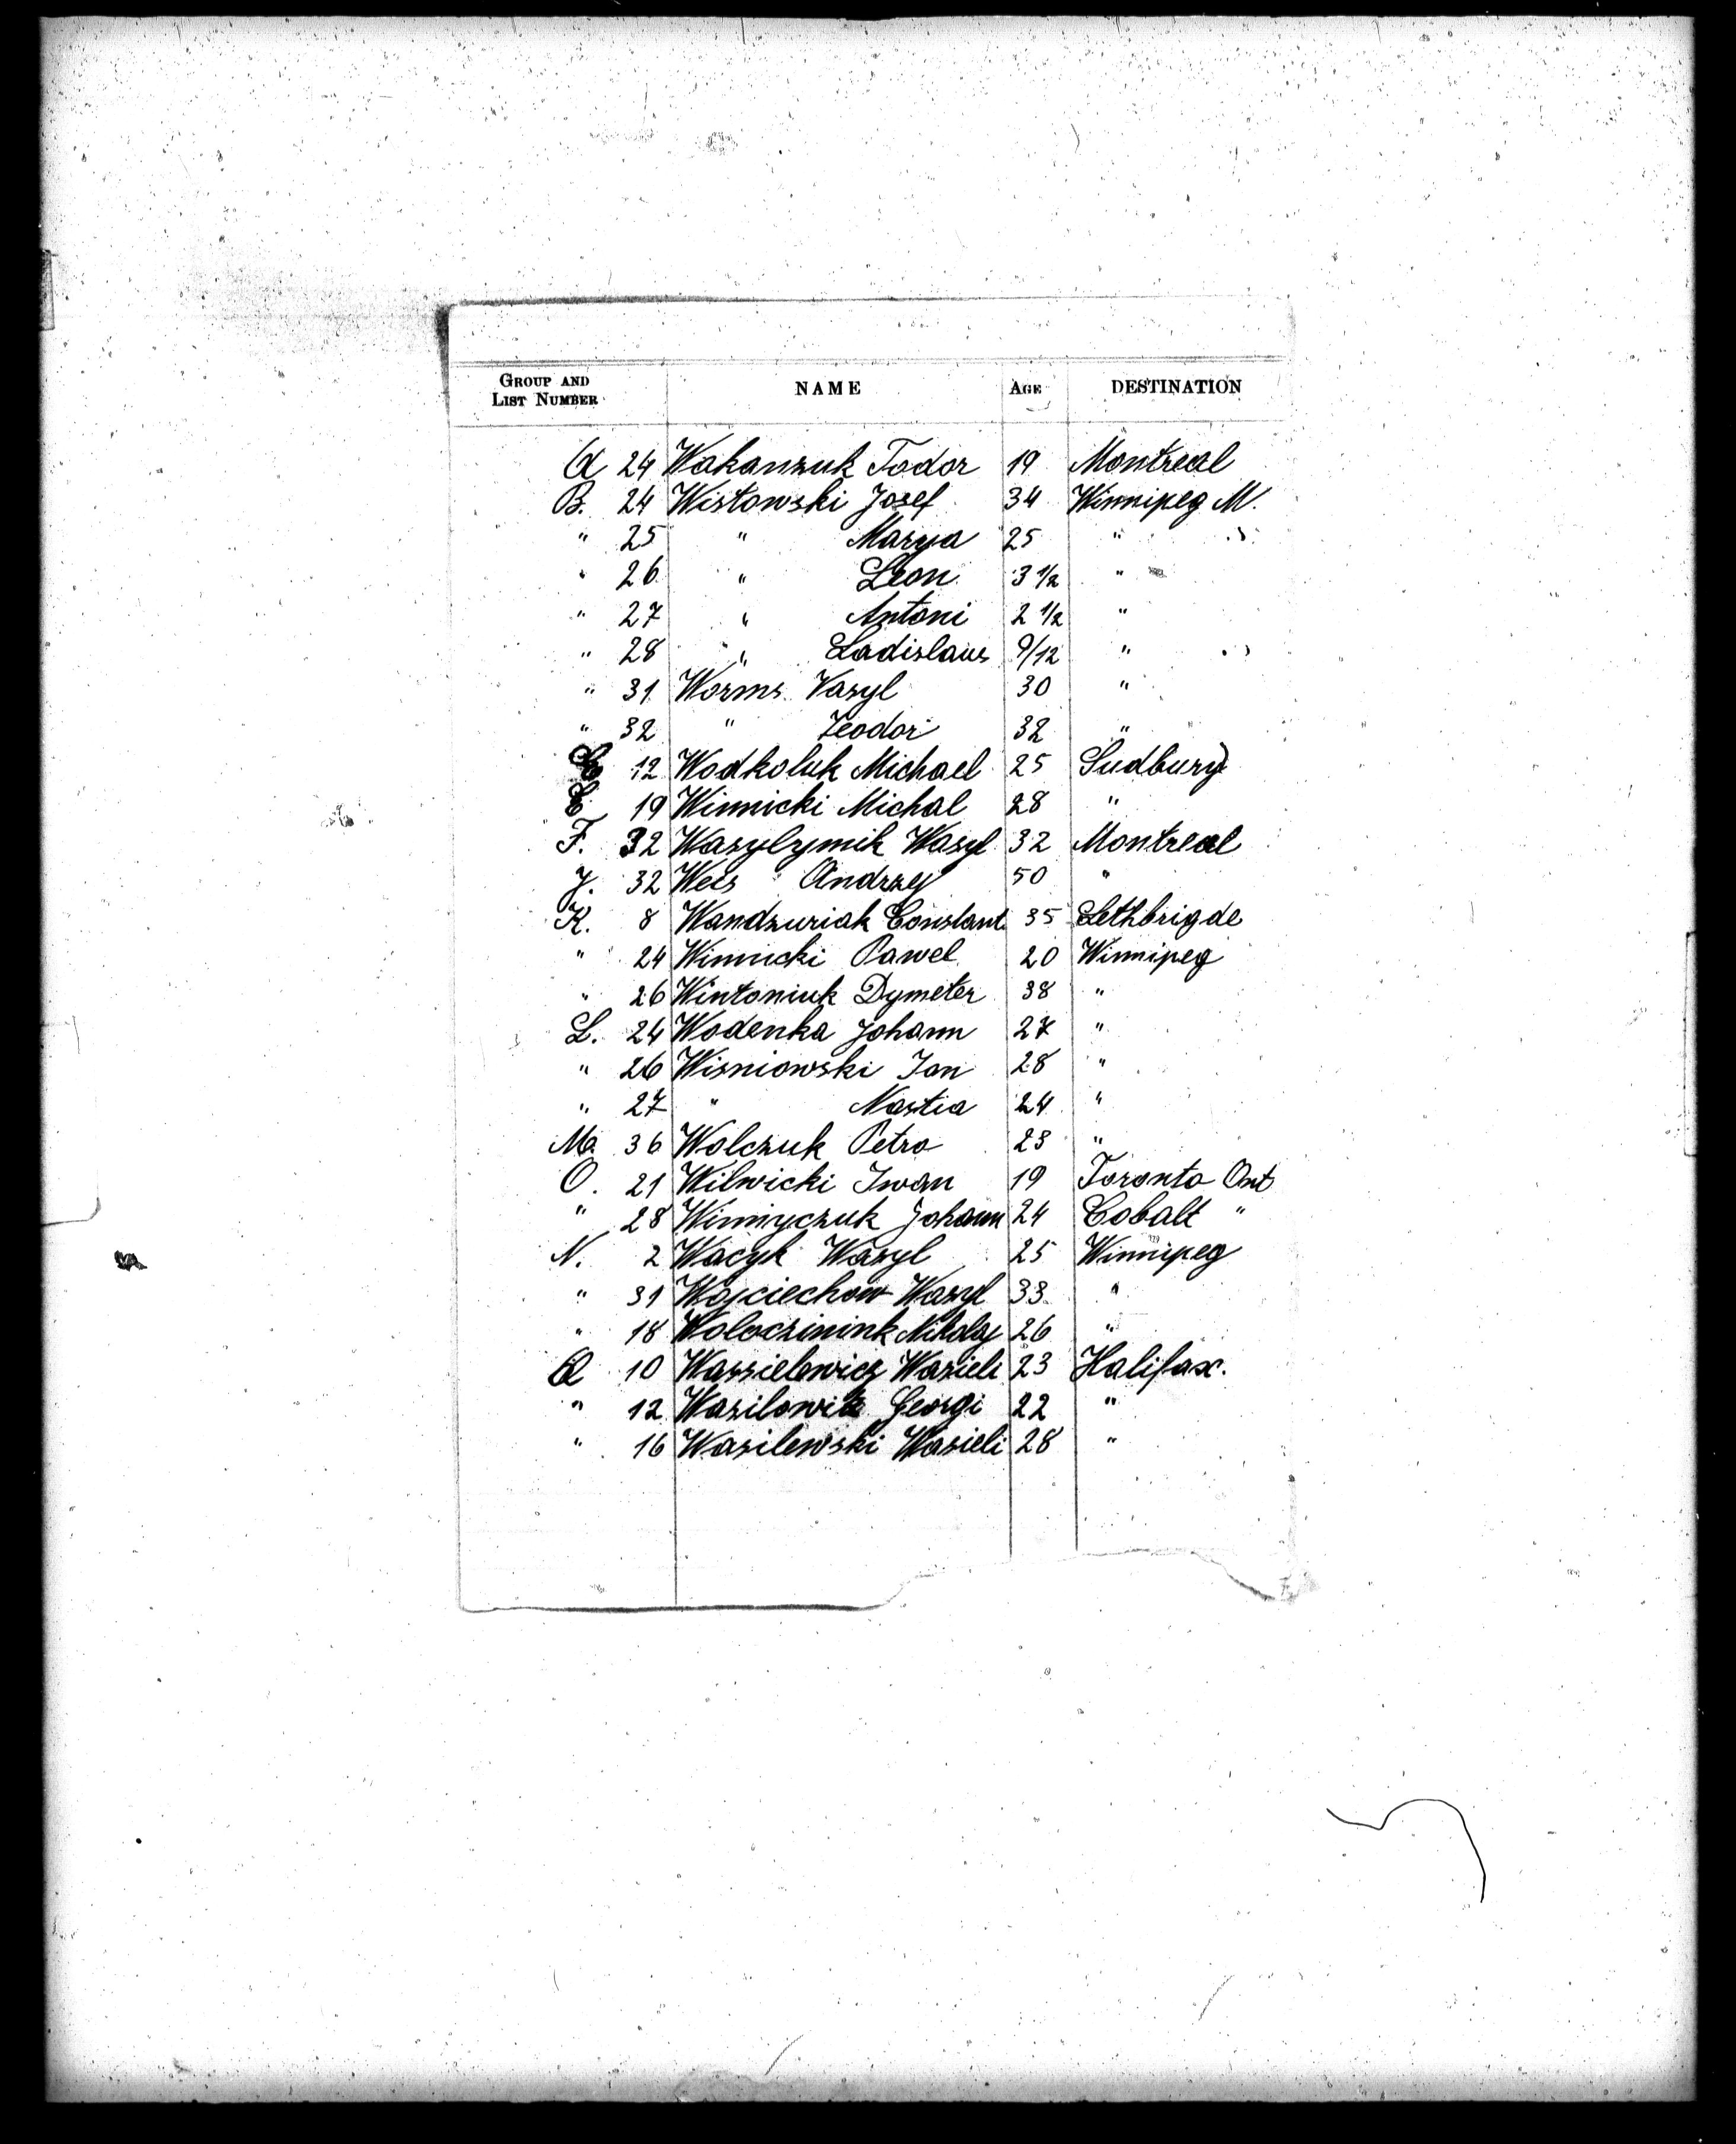 GROUP AND LIST NUMBER NAME AGE DESTINATION
A 24 Wakanzuk Todor 19 Montreal
B. 24 Wistowski Josef 34 Winnipeg M.
" 25 " Marya 25 "
" 26 " Leon 3 1/2 "
" 27 " Antoni 2 1/2 "
" 28 " Ladislaus 9/12 "
" 31 Worms Vasyl 30 "
" 32 " Teodor 32 "
12 Wodkoluk Michael 25 Sudbury
E 19 Winnicki Michal 28 "
F. 32 Wasylymik Wasyl 32 Montreal
J. 32 Weis Andrzey 50 "
K. 8 Wandzuriak Constant. 35 Lethbrigde
" 24 Winnicki Pawel 20 Winnipeg
" 26 Wintoniuk Dymeter 38 "
L. 24 Wodenka Johann 27 "
" 26 Wisniowski Jan 28 "
" 27 " Nastia 24 "
M. 36 Wolczuk Petro 23 "
O. 21 Wilwicki Iwan 19 Toronto Ont
" 28 Winnyczuk Johann 24 Cobalt "
N. 2 Wacyk Wasyl 25 Winnipeg
" 31 Wojciechow Wasyl 33 "
" 18 Woloczinink Nikolaj 26 "
10 Wassielewicz Wasieli 23 Halifax.
" 12 Wasilowik Georgi 22 "
" 16 Wasilewski Wasieli 28 "